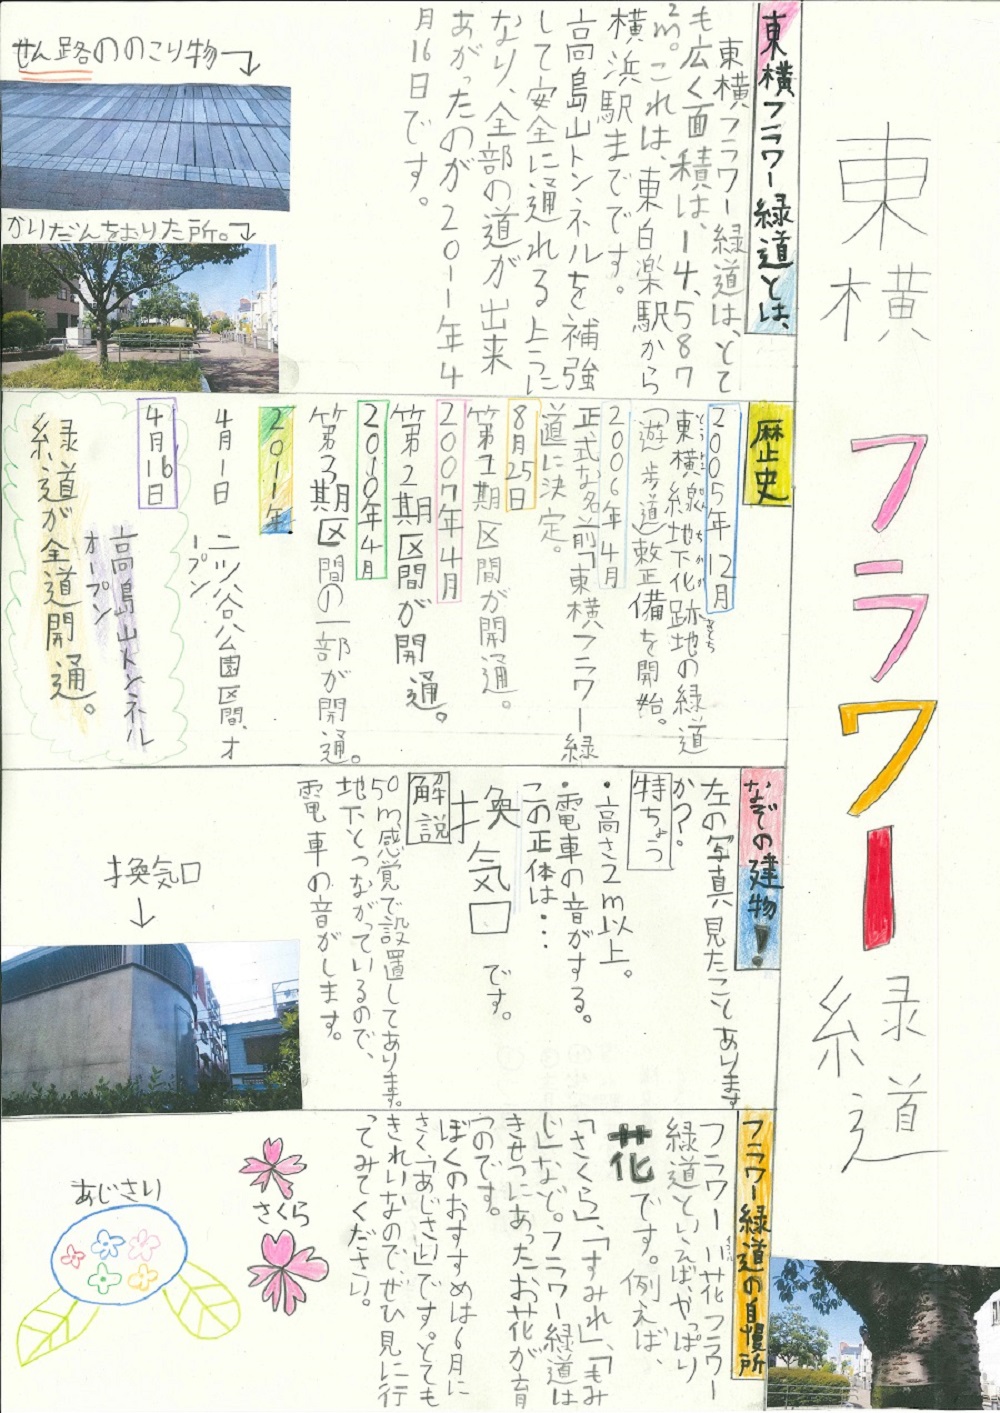 東横フラワー緑道
東横フラワー緑道とは、
東横フラワー緑道は、とて
も広く面積は、14,587
m²。これは、東白楽駅から
横浜駅までです。
高島山トンネルを補強
して安全に通れるように
なり、全部の道が出来
あがったのが2011年4
月16日です。
せん路ののこり物→
かいだんをおりた所。→
歴史
2005年12月
東横線地下化跡地の緑道
(遊歩道)整備を開始。
2006年4月
正式な名前「東横フラワー緑
道に決定。
8月25日
第1期区間が開通。
2007年4月
第2期区間が開通。
2010年4月
第3期区間の一部が開通。
2011年
4月1日 二ツ谷公園区間、オ
ープン
4月16日
高島山トンネル
オープン
緑道が全道開通。
なぞの建物!
左の写真見たことあります
か?
特ちょう
・高さ2m以上。
・電車の音がする。
この正体は・・・
換気口です。
解説
50m感覚で設置してあります。
地下とつながっているので、
電車の音がします。
換気口
↓
フラワー緑道の自慢所
フラワー=花フラワー
緑道といえば、やっぱり
花です。例えば、
「さくら」、「すみれ」、「もみ
じ」など。フラワー緑道は
きせつにあったお花が育
つのです。
ぼくのおすすめは6月に
さく「あじさい」です。とても
きれいなので、ぜひ見に行
ってみてください。
さくら
あじさい